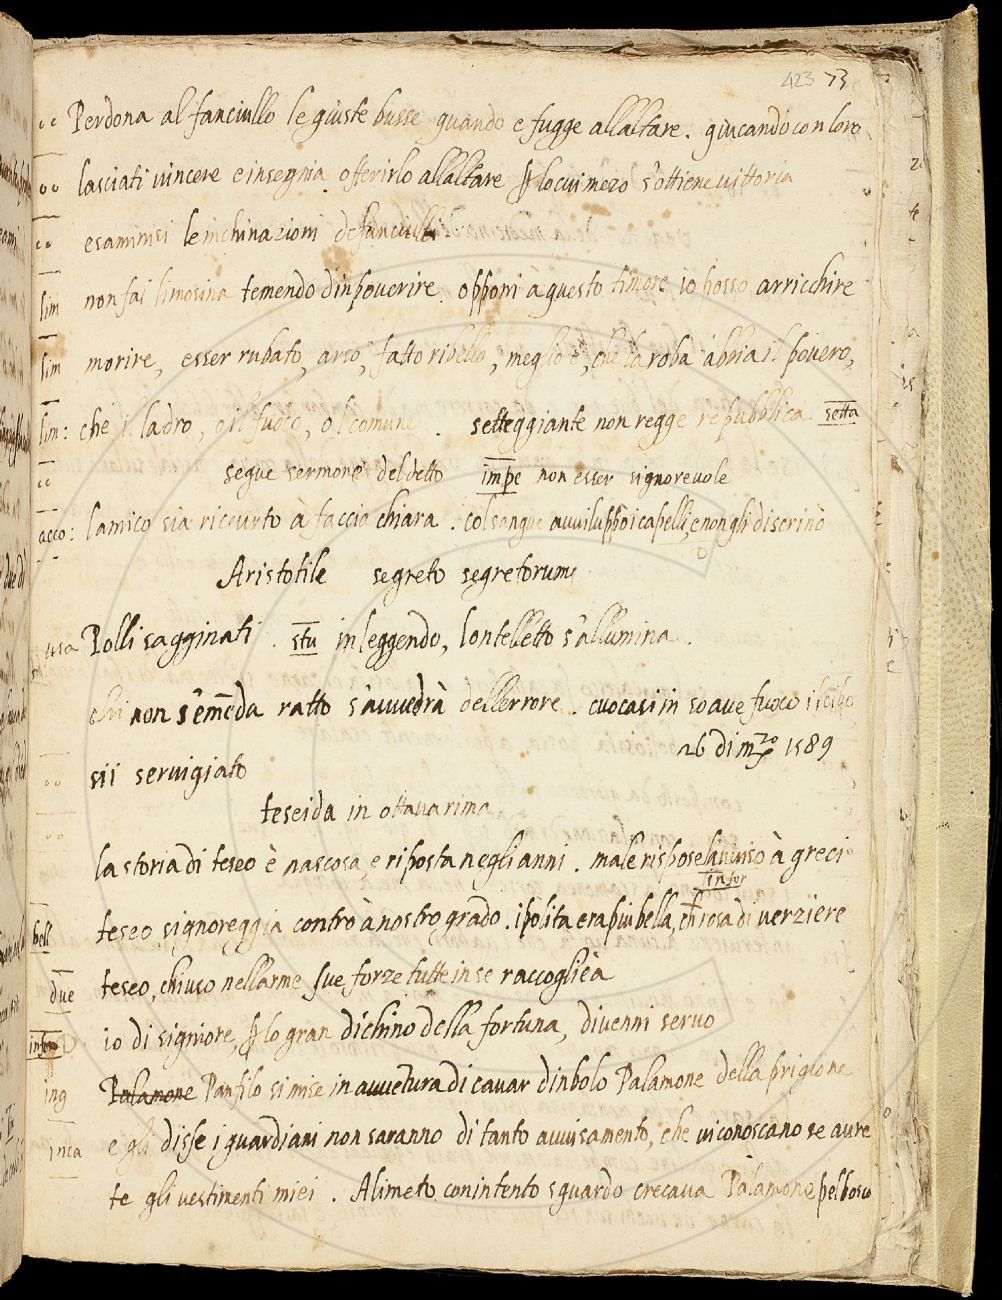 423 73
Perdona al fanciullo le giuste busse quando e fugge allaltare. giucando con loro
lasciati vincere e insegnia offerirlo allaltare p lo cui mezo s'ottiene vittoria
esaminisi le inchinazioni de fanciulli
lim non fai limosina temendo dinpouerire. opponi à questo timore io posso arricchire
lim morire, esser rubato, arso, fatto ribello, meglio è, che la roba abbia il pouero,
lim: che il ladro, o il fuoco, o l comune. setteggiante non regge repubblica. setta
segue sermone del detto impe non esser signoreuole
acco: lamico sia riceuto à faccia chiara. col sangue auuiluppò i capelli, e non gli discrinò
Aristotile segreto segretorum
usa Polli sagginati. stu in leggendo, lontelletto s'allumina.
chi non s'emēda ratto s'auuedrà dellerrore. cuocasi in soaue fuoco il cibo
26 di mzo 1589
sii seruigiato
teseida in ottaua rima
la storia di teseo è nascosa, e riposta negli anni. male rispose lauuiso à greci
infor
teseo signoreggia contro à nostro grado. ipolita era piu bella, ch rosa di verziere
bell
teseo, chiuso nellarme sue forze tutte in se raccoglièa
due
io di signiore, p lo gran dichino della fortuna, diuenni seruo
infor
ing Palamone Panfilo si mise in auuētura di cauar dinbolo Palamone della prigione
inca e gli disse i guardiani non saranno di tanto auuisamento, che vi conoscano se aure
te gli vestimenti miei. Alimeto con intento sguardo cercaua Palamone pel bosco